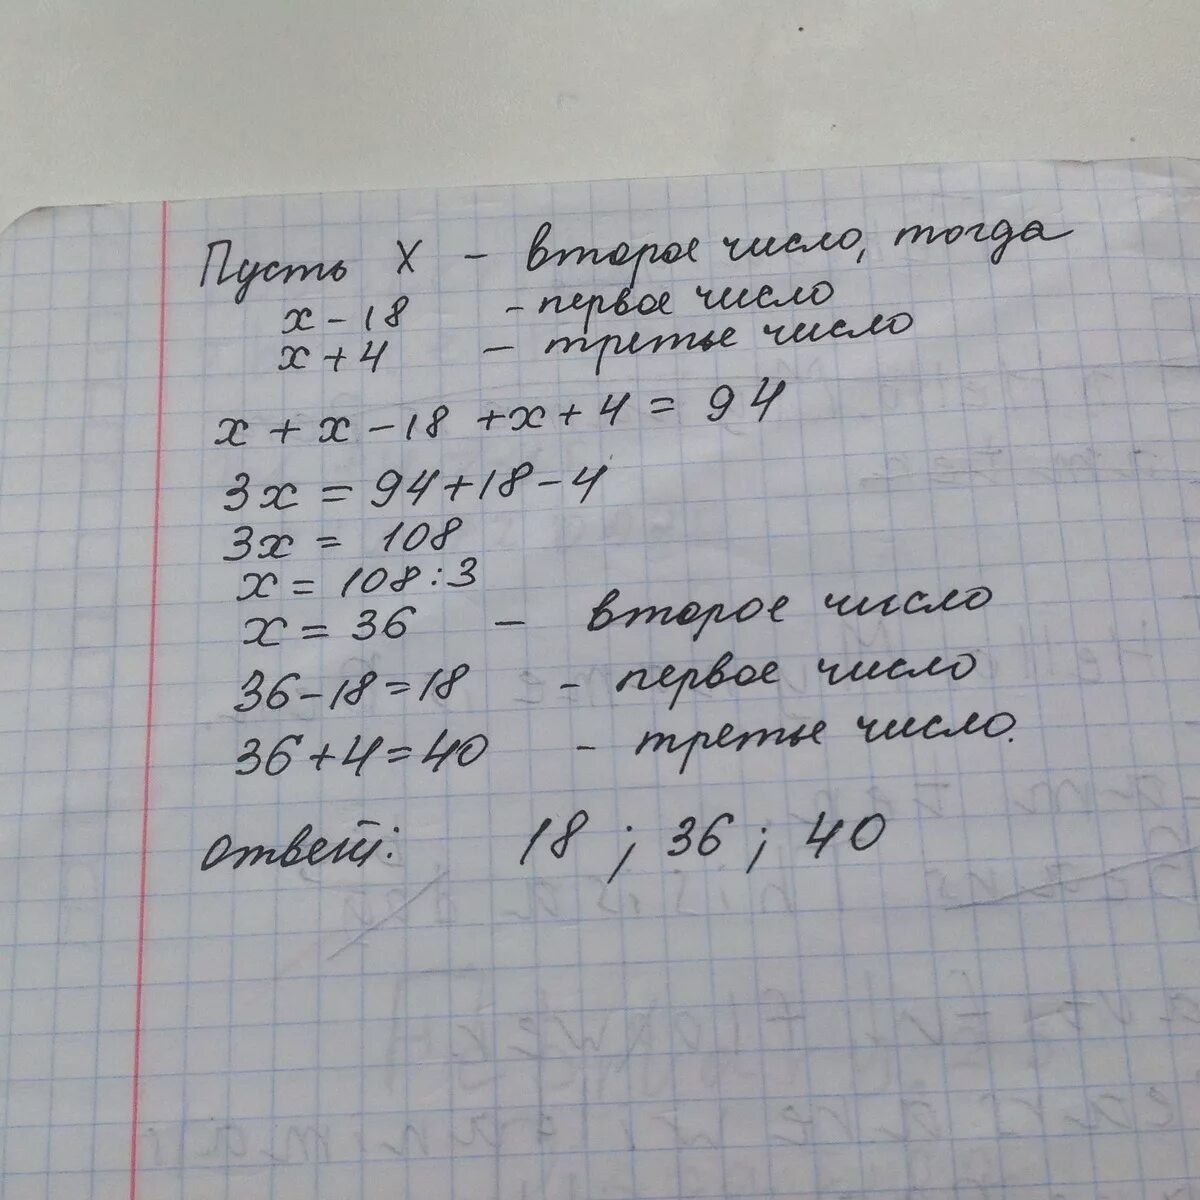 Пусть X - второе число, тогда
x - 18 - первое число
x + 4 - третье число
x + x - 18 + x + 4 = 94
3x = 94 + 18 - 4
3x = 108
x = 108 : 3
x = 36 - второе число
36 - 18 = 18 - первое число
36 + 4 = 40 - третье число.
ответ: 18 ; 36 ; 40